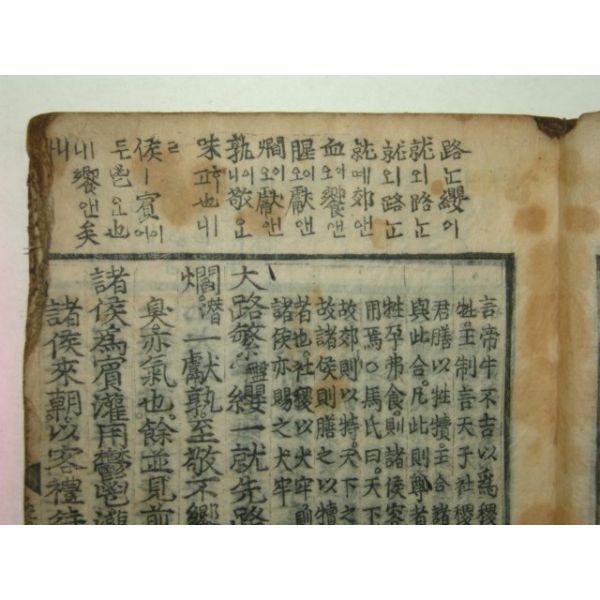 路노纓이
就외路노
就외路노
就떼郊앤
血오이饗앤
腥오이獻앤
爓오이獻앤
孰이니敬오
侯ㅡ賓에이
드鬯으也
내饗앤矣
言帝牛不吉以爲稷
牲王制言天子社稷
君膳以牲犢主合諸
與此合凡此則尊者
牲孕弗食則諸侯客
用焉○馬氏曰天下
故郊則以特天下之
故諸侯則膳之以犢
也社稷以大牢則
諸侯亦賜之大牢
大路繁盤纓一就先路
爓潛一獻孰至敬不饗
臭亦氣也餘並見前
諸侯爲賓灌用鬱鬯灌
諸侯來朝以客禮待